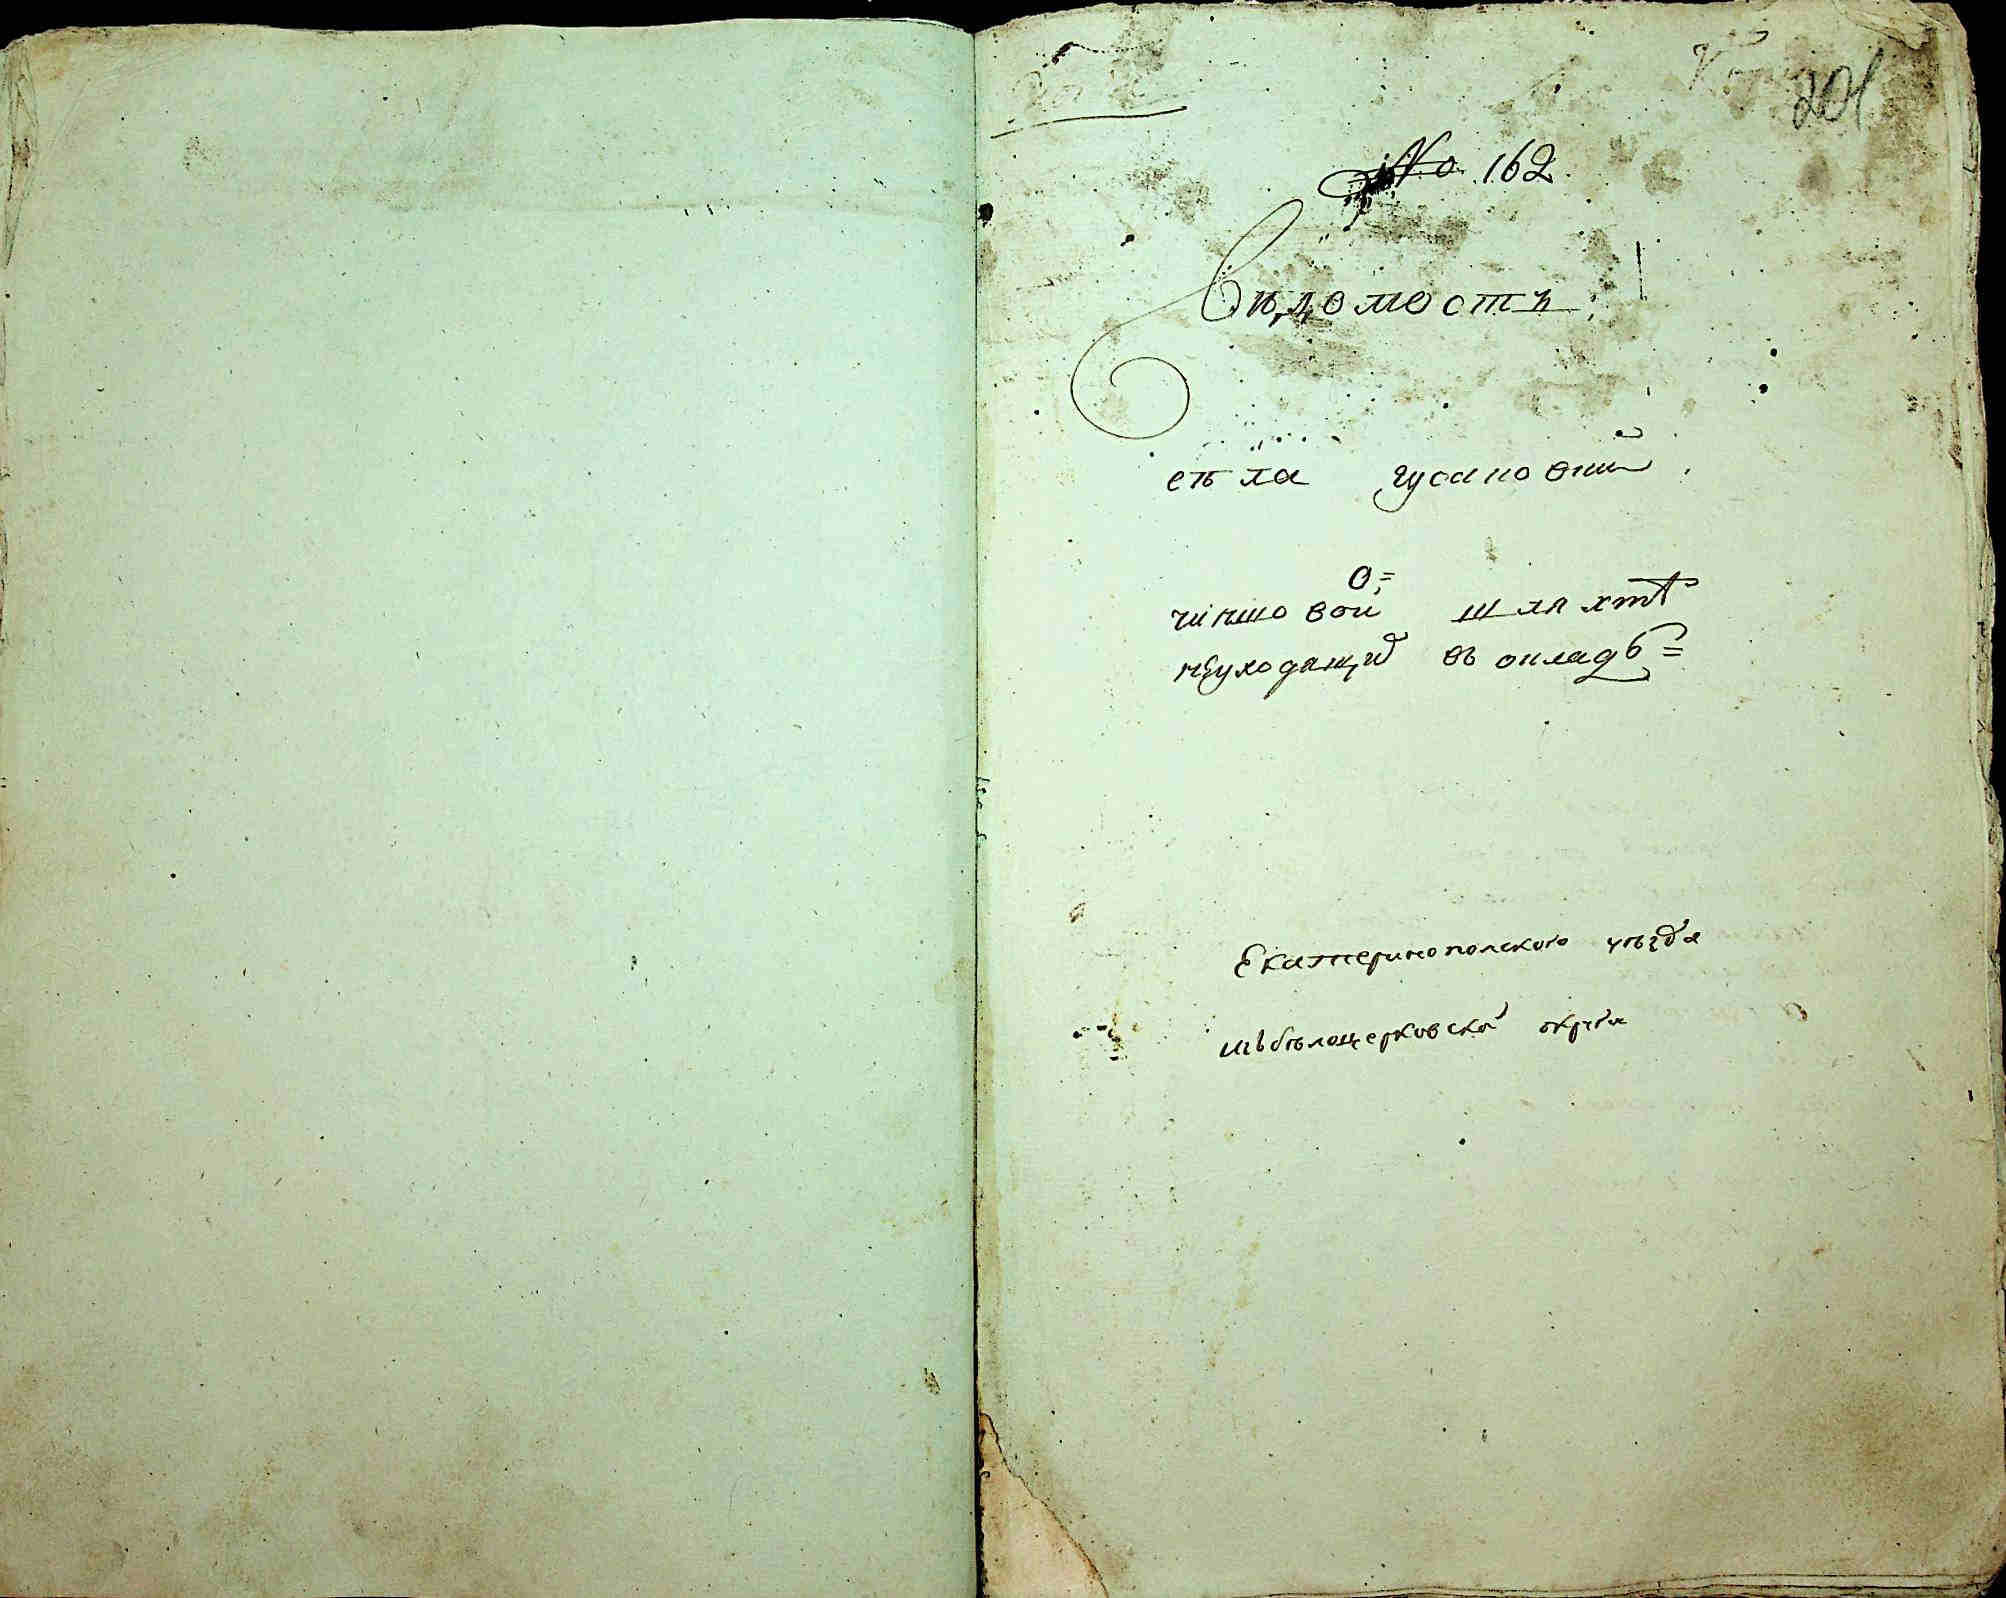 201
No 162
Вѣдомость
сѣла гусановкий
о
чиншовои шляхтѣ
неуходящий въ окладъ
Екатеринополского уѣзда
бѣлоцерковской округи